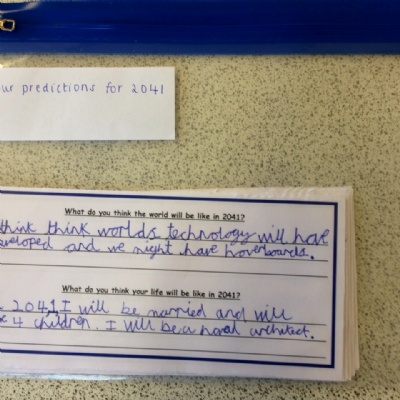 ur predictions for 2041
What do you think the world will be like in 2041?
think think worlds technology will have
veloped and we might have hoverboards.
What do you think your life will be like in 2041?
2041 I will be married and will
4 children. I will be a naval architect.